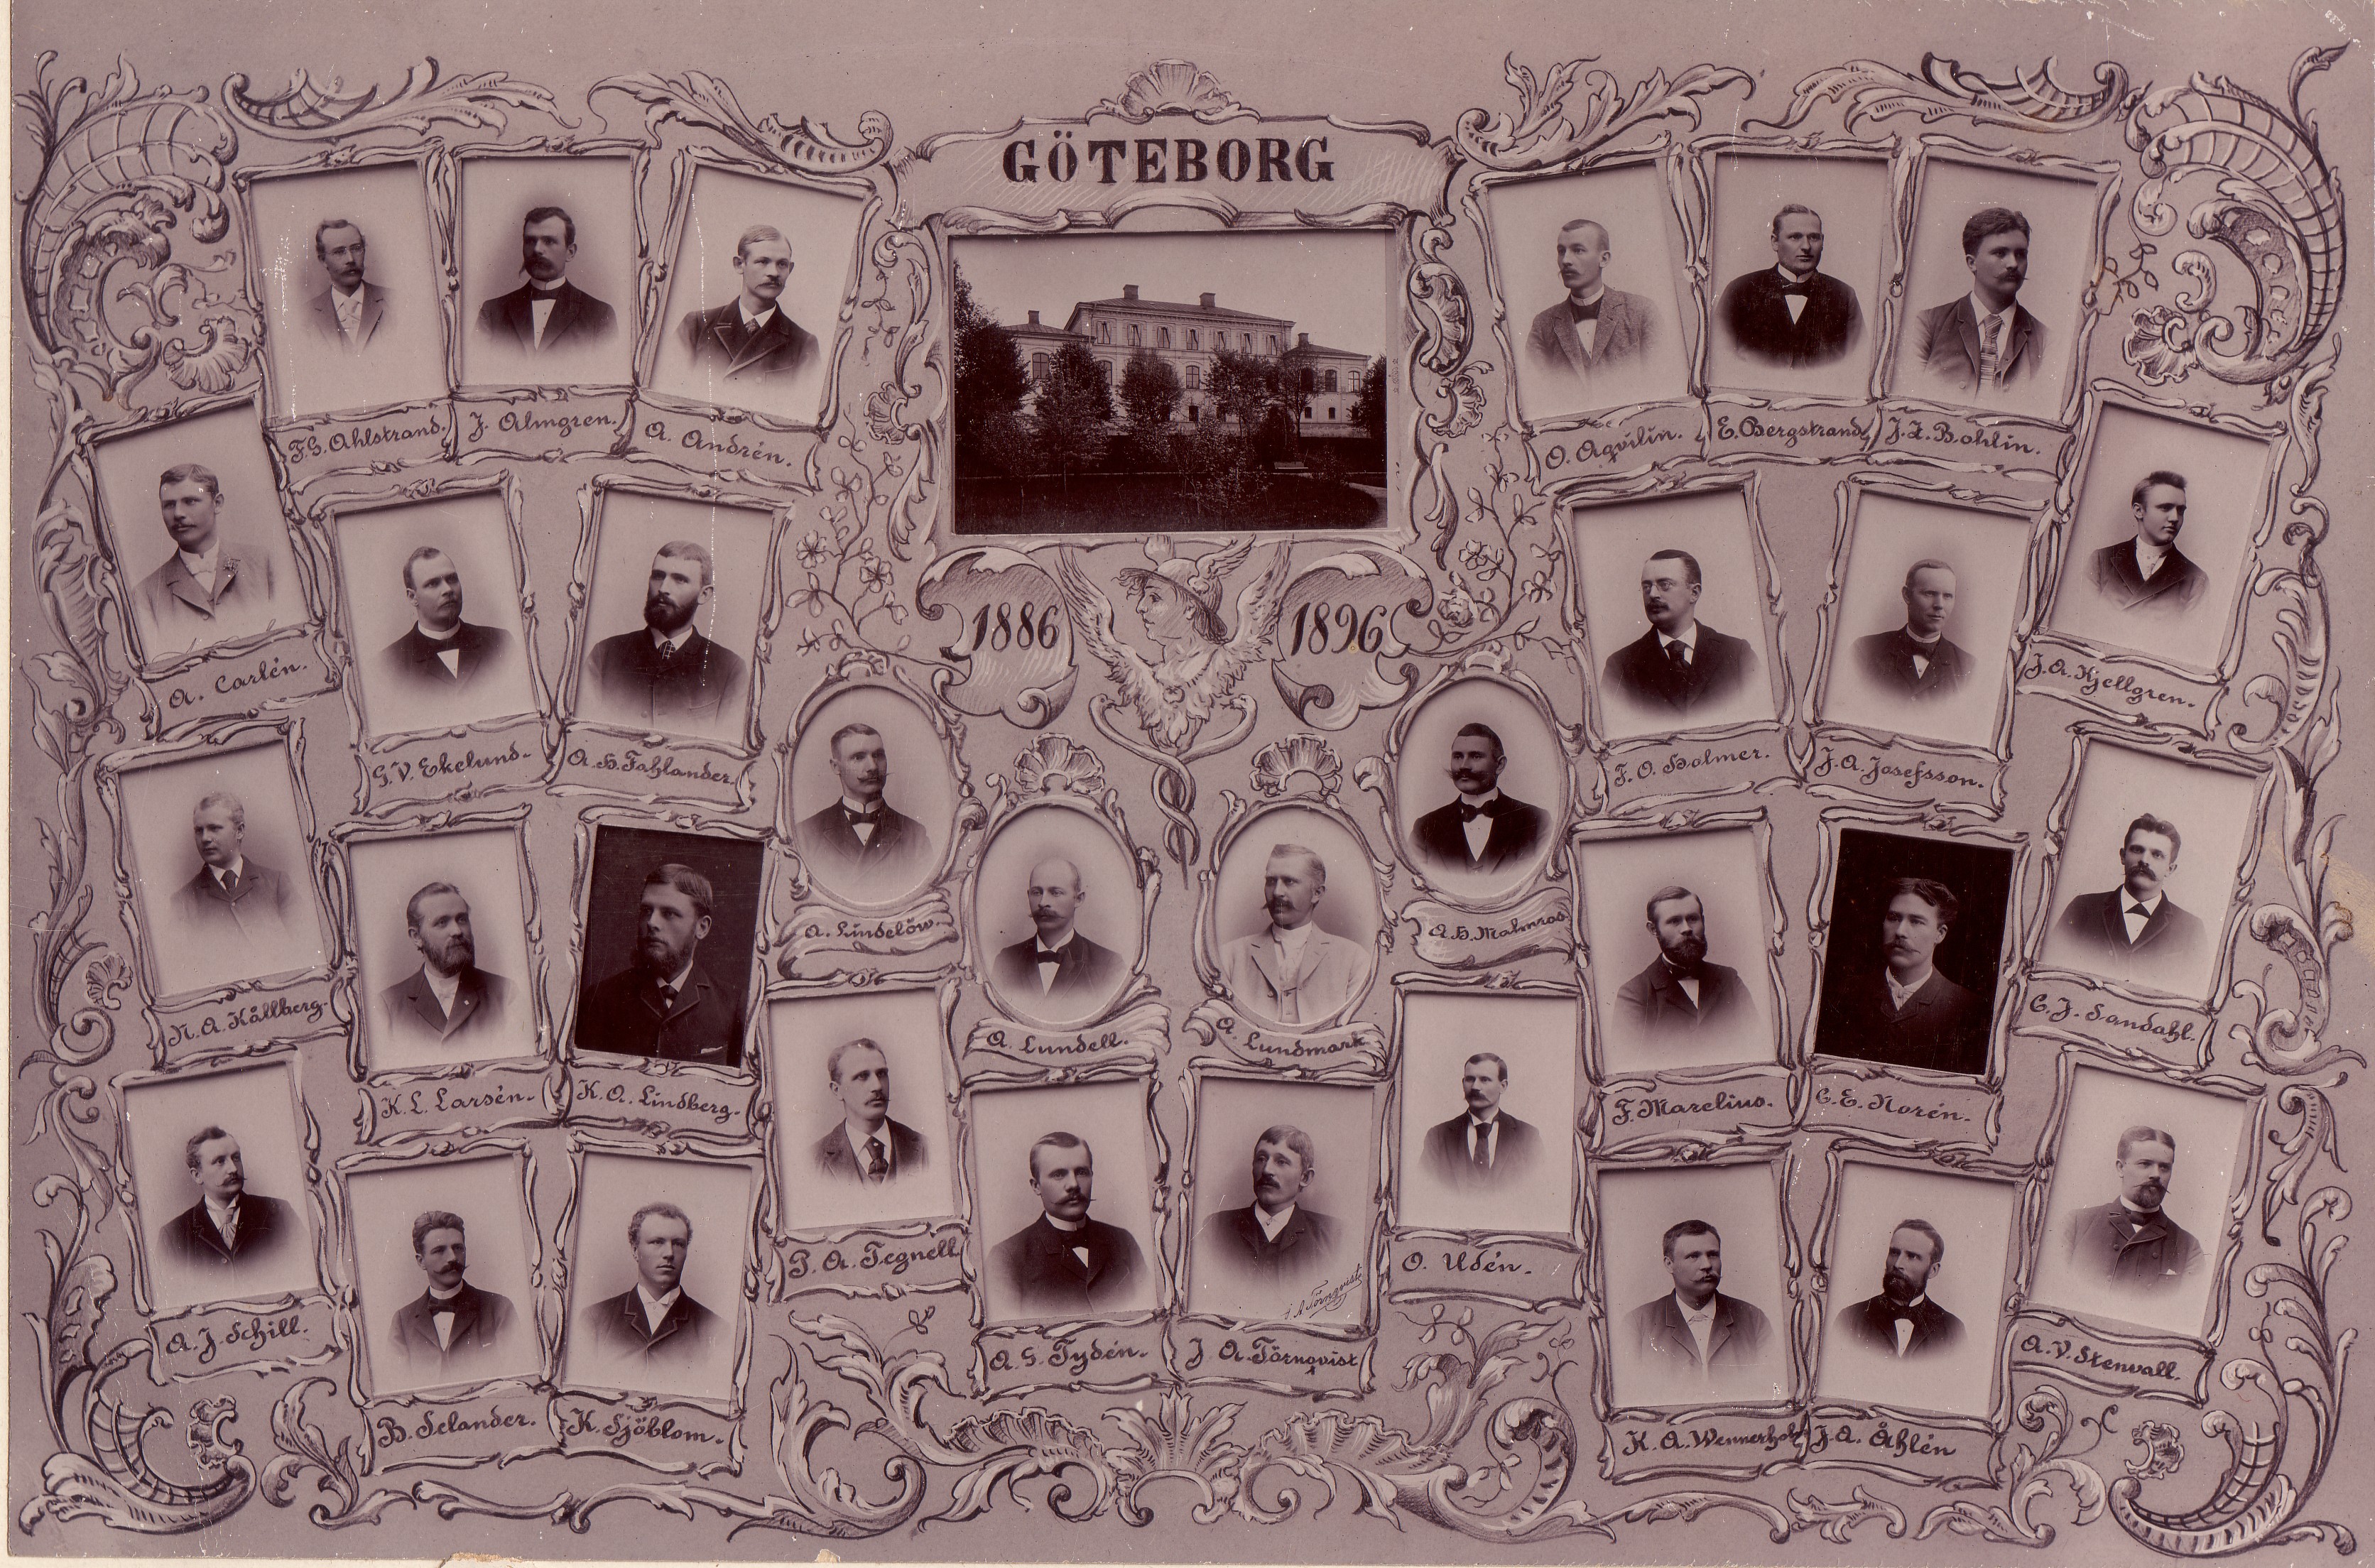 GÖTEBORG
F.G. Ahlstrand.
J. Almgren.
A. Andrén.
O. Aqvilin.
E. Bergstrand.
J.L. Bohlin.
A. Carlén.
G.V. Ekelund.
A.H. Fahlander.
1886
1896
F.O. Holmer.
J.A. Josefsson.
J.A. Kjellgren.
N.A. Källberg.
K.L. Larsén.
K.A. Lindberg.
A. Lindelöw.
A. Lundell.
A. Lundmark.
A.H. Malmros
F. Marelius.
C.E. Norén.
C.J. Sandahl.
A.J. Schill.
B. Selander.
K. Sjöblom.
P.A. Tegnell
A.G. Tydén.
J.A. Törnqvist
J.A. Törnqvist
O. Udén.
K.A. Wennerholm
J.A. Åhlén
A.V. Stenvall.